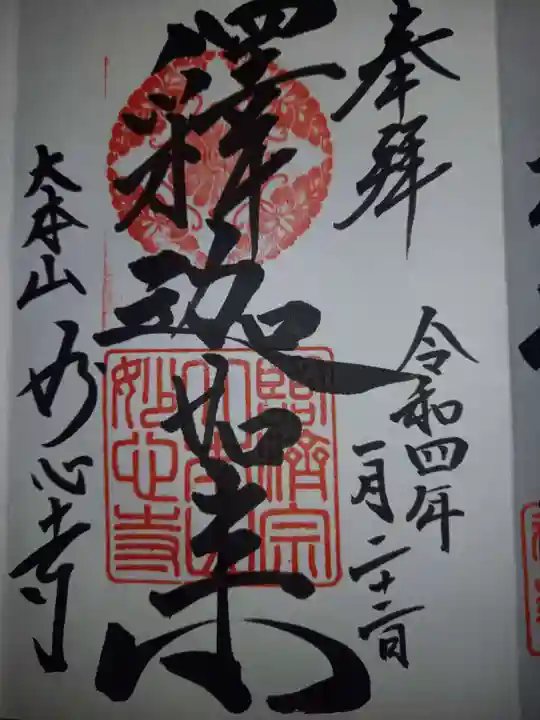 奉拜
令和四年
一月二十二日
釋迦如来
大本山 妙心寺
臨濟宗
大本山
妙心寺